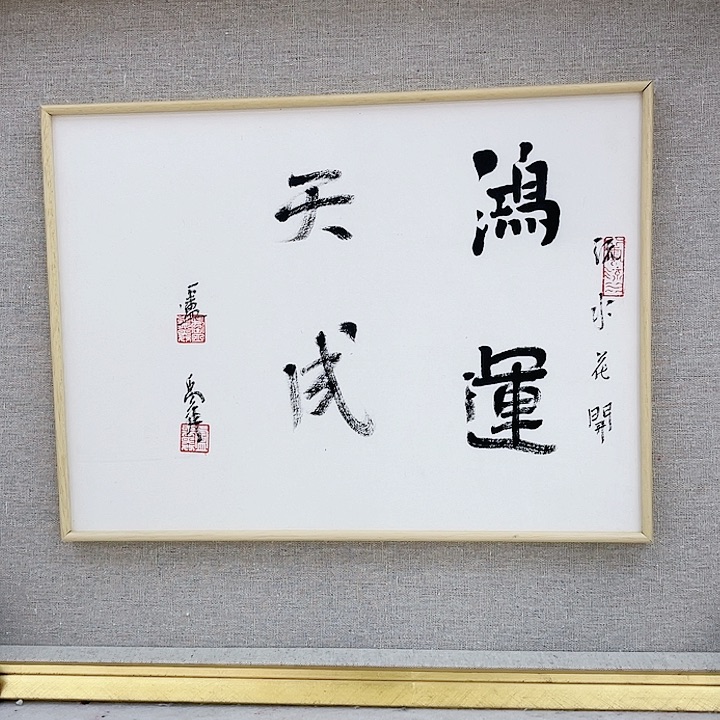 流水花開
鴻運
天成